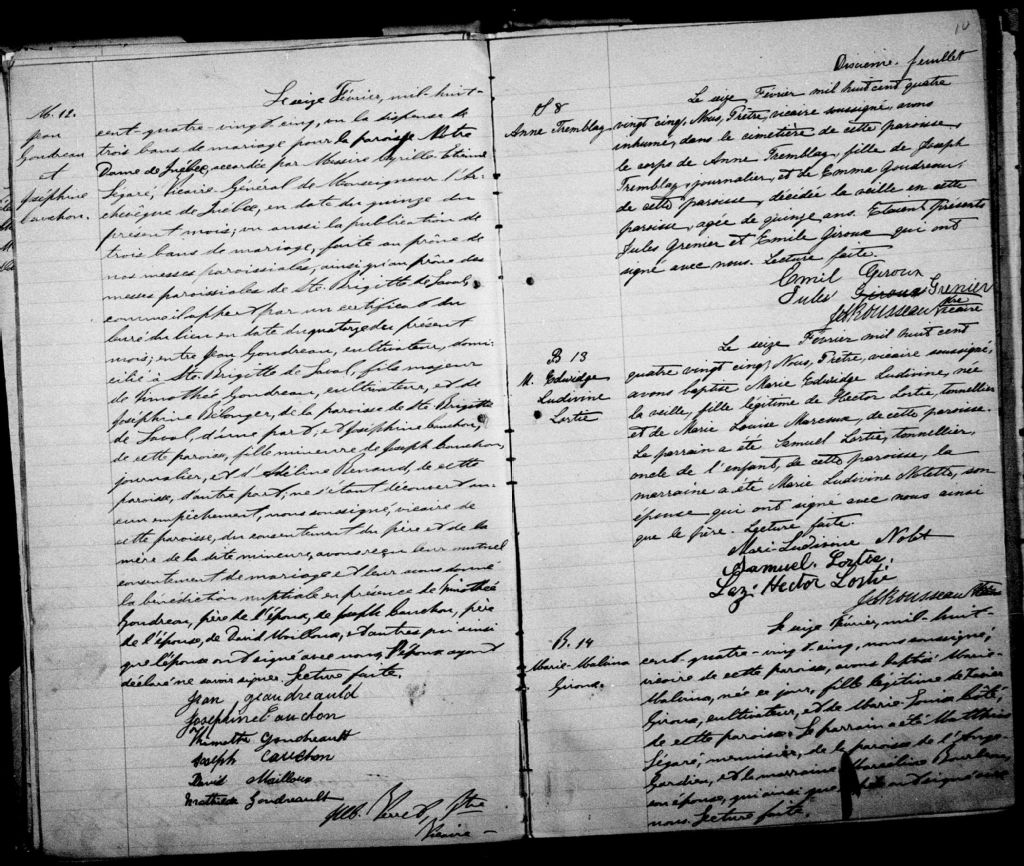 M. 12.
Jean
Goudreau
et
Joséphine
Cauchon.
Le seize Février, mil-huit-
cent-quatre-vingt-cinq, vu la dispense de
trois bans de mariage pour la paroisse Notre
Dame de Québec, accordée par Messire Cyrille Etienne
Légaré, Vicaire Général de Monseigneur l'Ar-
chevêque de Québec, en date du quinze du
présent mois; vu aussi la publication de
trois bans de mariage, faite au prône de
nos messes paroissiales, ainsi qu'au prône des
messes paroissiales de Ste. Brigitte de Laval,
comme il appert par un certificat du
curé du lieu en date du quatorze du présent
mois; entre Jean Goudreau, cultivateur, domi-
cilié à Ste. Brigitte de Laval, fils majeur
de Timothée Goudreau, cultivateur, et de
Joséphine Bélanger, de la paroisse de Ste Brigitte
de Laval, d'une part; et Joséphine Cauchon,
de cette paroisse, fille mineure de Joseph Cauchon,
journalier, et d'Adéline Renaud, de cette
paroisse, d'autre part; ne s'étant découvert au-
cun empêchement, nous soussigné, vicaire de
cette paroisse, du consentement du père et de la
mère de la dite mineure, avons reçu leur mutuel
consentement de mariage et leur avons donné
la bénédiction nuptiale en présence de Timothée
Goudreau, père de l'époux, de Joseph Cauchon, père
de l'épouse, de David Mailloux, et autres qui ainsi
que l'épouse ont signé avec nous, l'époux ayant
déclaré ne savoir signer. Lecture faite.
Jean geaudreauld
Josephine Cauchon
Thimothe Goudreault
Joseph Cauchon
David Mailloux
Mathilda Goudreault
Ptre
Vicaire
10
Dixième feuillet
S 8
Anne Tremblay
Le seize Février mil huit cent quatre
vingt cinq, Nous, Prêtre, vicaire soussigné, avons
inhumé, dans le cimetière de cette paroisse,
le corps de Anne Tremblay, fille de Joseph
Tremblay, journalier, et de Emma Goudreau,
de cette paroisse, décédée la veille en cette
paroisse, agée de quinze ans. Etaient présents
Jules Grenier et Emile Giroux qui ont
signé avec nous. Lecture faite.
Emil Giroux
Jules Giroux Grenier
Rousseau Ptre
Vicaire
B 13
M. Edwidge
Ludivine
Lortie
Le seize Février mil huit cent
quatre vingt cinq, Nous, Prêtre, vicaire soussigné,
avons baptisé Marie Edwidge Ludivine, née
la veille, fille légitime de Hector Lortie, tonnellier
et de Marie Louise Marceau, de cette paroisse.
Le parrain a été Samuel Lortie, tonnellier,
oncle de l'enfant, de cette paroisse, la
marraine a été Marie Ludivine Nolette, son
épouse qui ont signé avec nous ainsi
que le père. Lecture faite.
Mari-Ludivine Nolet
Samuel. Lortie.
Laz. Hector Lortié
Rousseau Ptre
B. 14
Marie-Malvina
Giroux.
Le seize Février, mil-huit-
cent-quatre-vingt-cinq, nous soussigné,
vicaire de cette paroisse, avons baptisé Marie-
Malvina, née ce jour, fille légitime de Xavier
Giroux, cultivateur, et de Marie-Louise Côté,
de cette paroisse. Le parrain a été Matthias
Légaré, menuisier, de la paroisse de l'Ange
Gardien, et la marraine Marcéline Bourbeau,
son épouse, qui ainsi que ont signé avec
nous. Lecture faite.